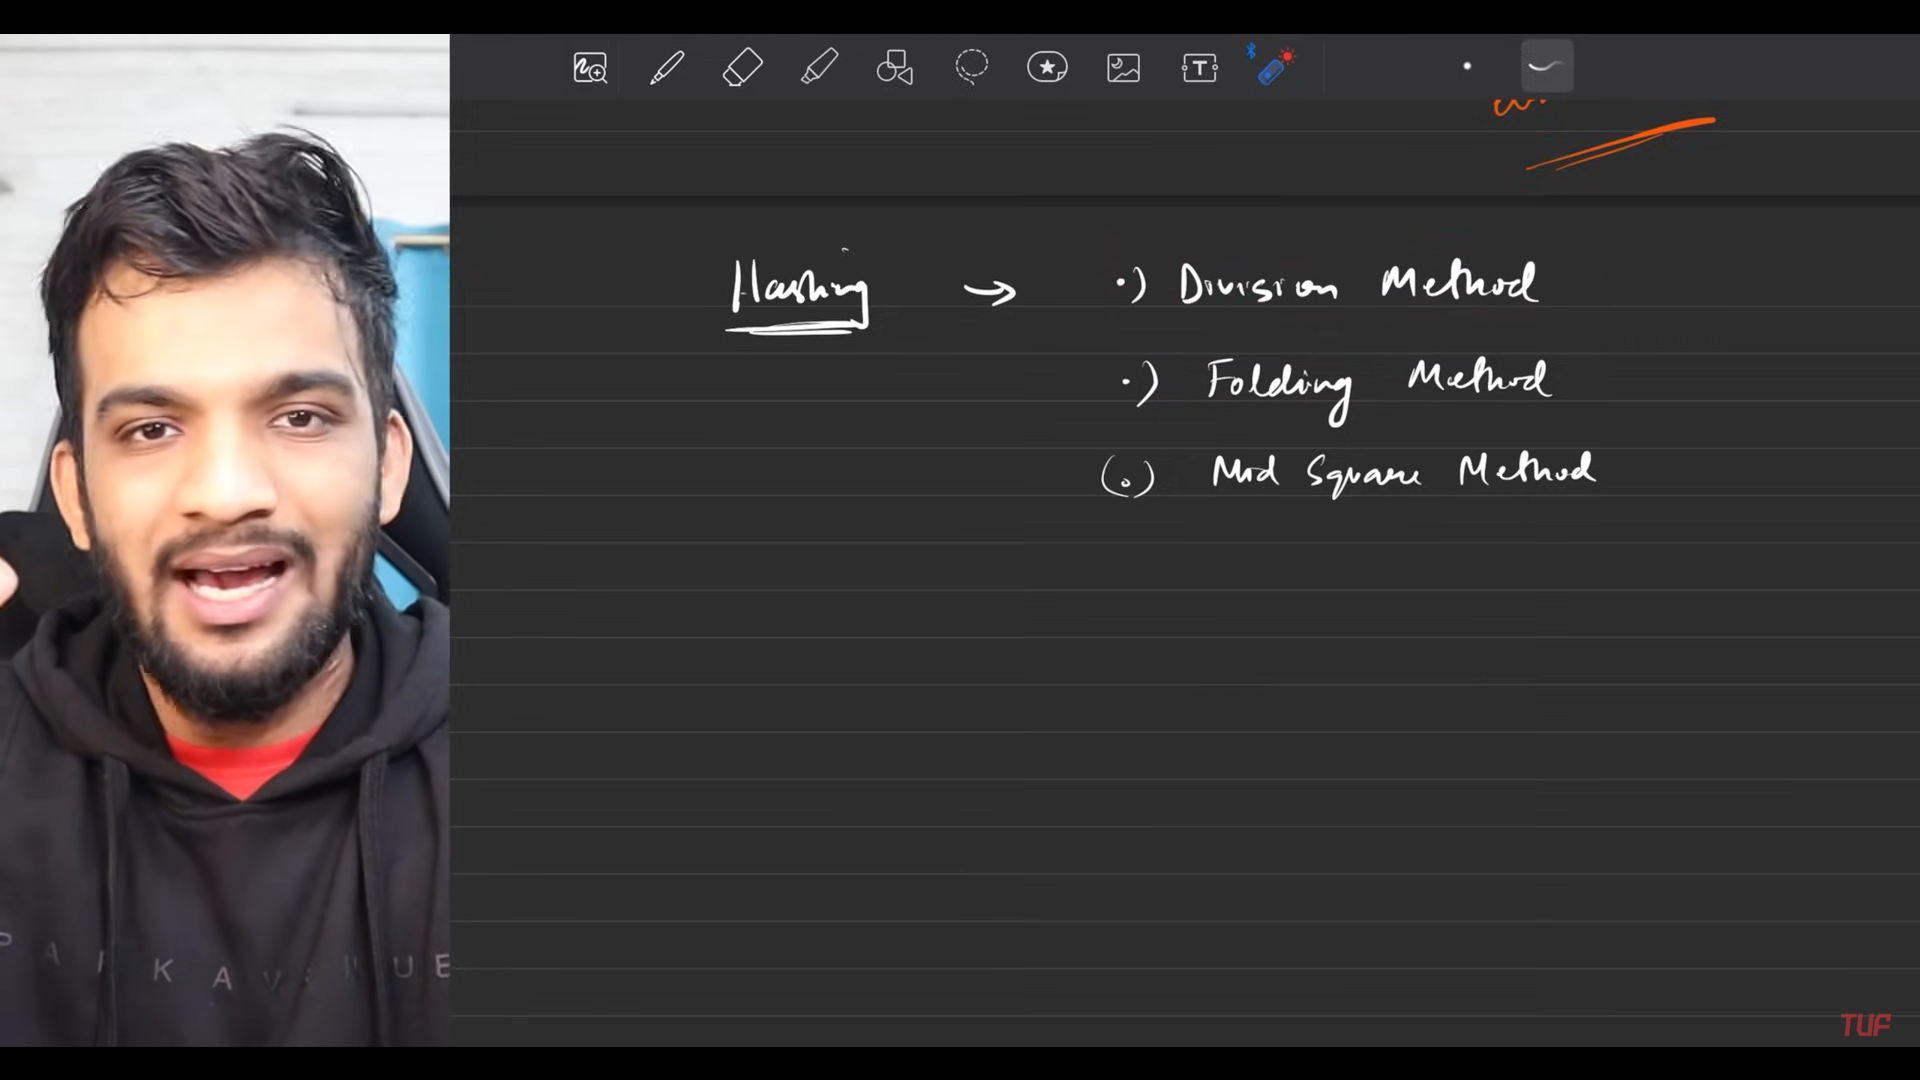 Hashing → •) Division Method
•) Folding Method
(•) Mid Square Method
PARKAVENUE
TUF